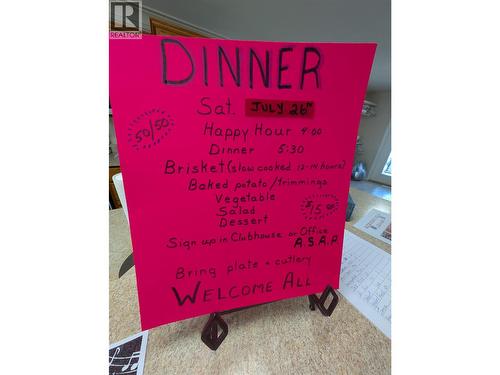 REALTOR
DINNER
Sat. JULY 26TH
50/50
Happy Hour 4:00
Dinner 5:30
Brisket (slow cooked 12-14 hours)
Baked potato/trimmings
Vegetable
Salad
Dessert
Sign up in Clubhouse or Office
A.S.A.P
Bring plate & cutlery
WELCOME ALL